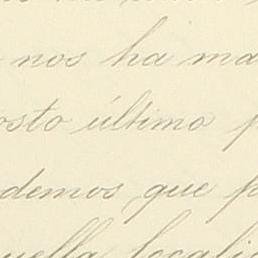 nos ha ma
osto último p
demos que p
uella locali